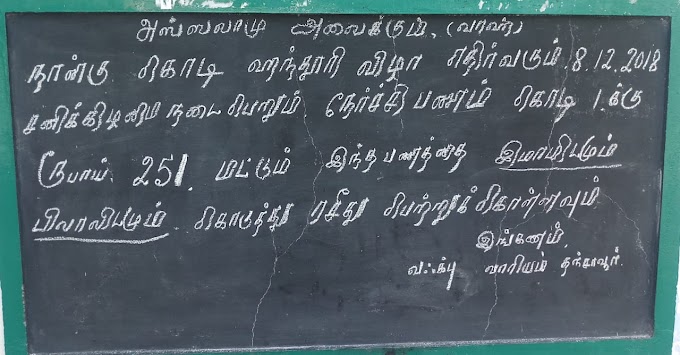 அஸ்ஸலாமு அலைக்கும், (வரஹ்)
நான்கு கொடி ஹந்தூரி விழா எதிர்வரும் 8.12.2018
சனிக்கிழமை நடைபெறும் நேர்ச்சி பணம் கொடி 1.க்கு
ரூபாய். 251. மட்டும் இந்த பணத்தை இமாமிடமும்
பிலாலிடமும் கொடுத்து ரசீது பெற்றுக்கொள்ளவும்
இங்கணம்.
வஃக்பு வாரியம் தஞ்சாவூர்.